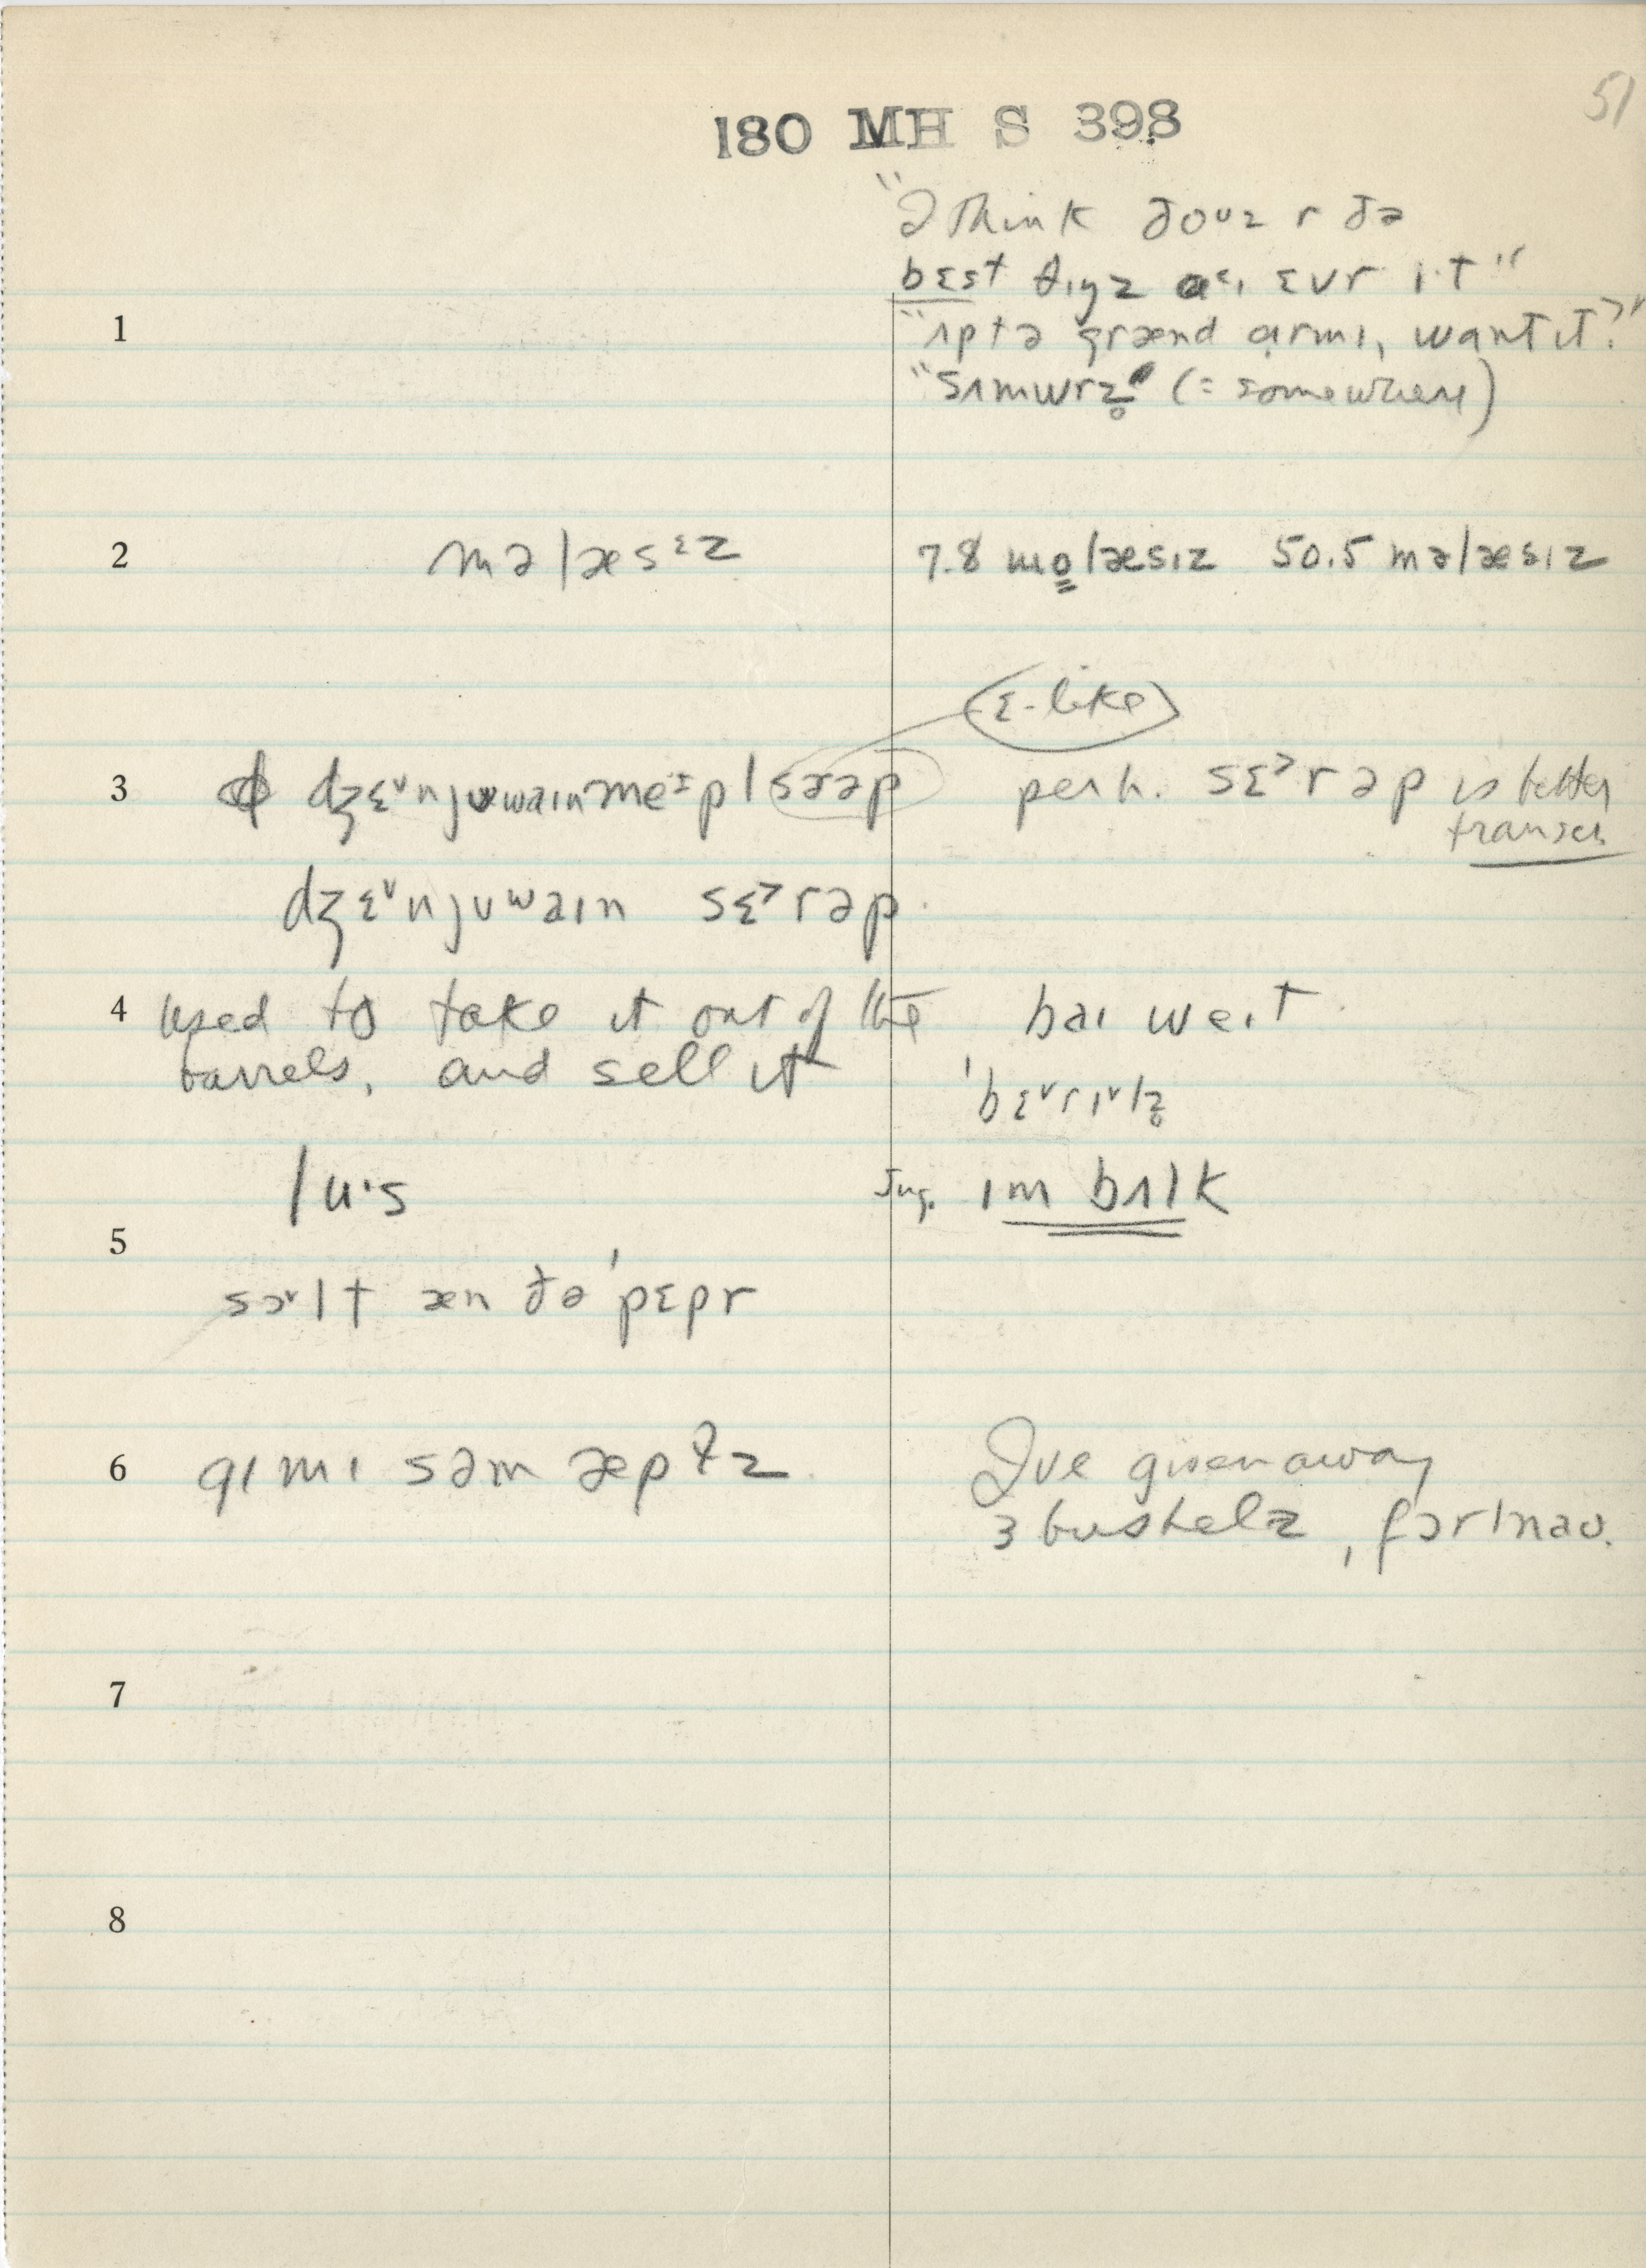 51
180 MH S 398
"I think ðouz r ðə
bɛst θɪŋz aɛɪ ɛvr i·t"
1
"ʌptə grænd armɪ, want it?"
"sʌmwrz̥" (= somewhere)
2 məlæsɛz 7.8 molæsɪz 50.5 məlæsɪz
ɛ-like
3 dʒɛ˅njuwaɪnmeɪpl sɚəp perh. sɛ˃rəp is better
transcr.
dʒɛ˅njuwaɪn sɛ˃rəp
4 used to take it out of the baɪ weɪt
barrels, and sell it
ˈbɛ˅rɪ˅lz̥
lu·s Sug. ɪm bʌlk
5
sɔ˅lt æn ðəˈpɛpr
6 gɪmɪ səm æpļz I've given away
3 bushelz, fɔrlnaʊ.
7
8